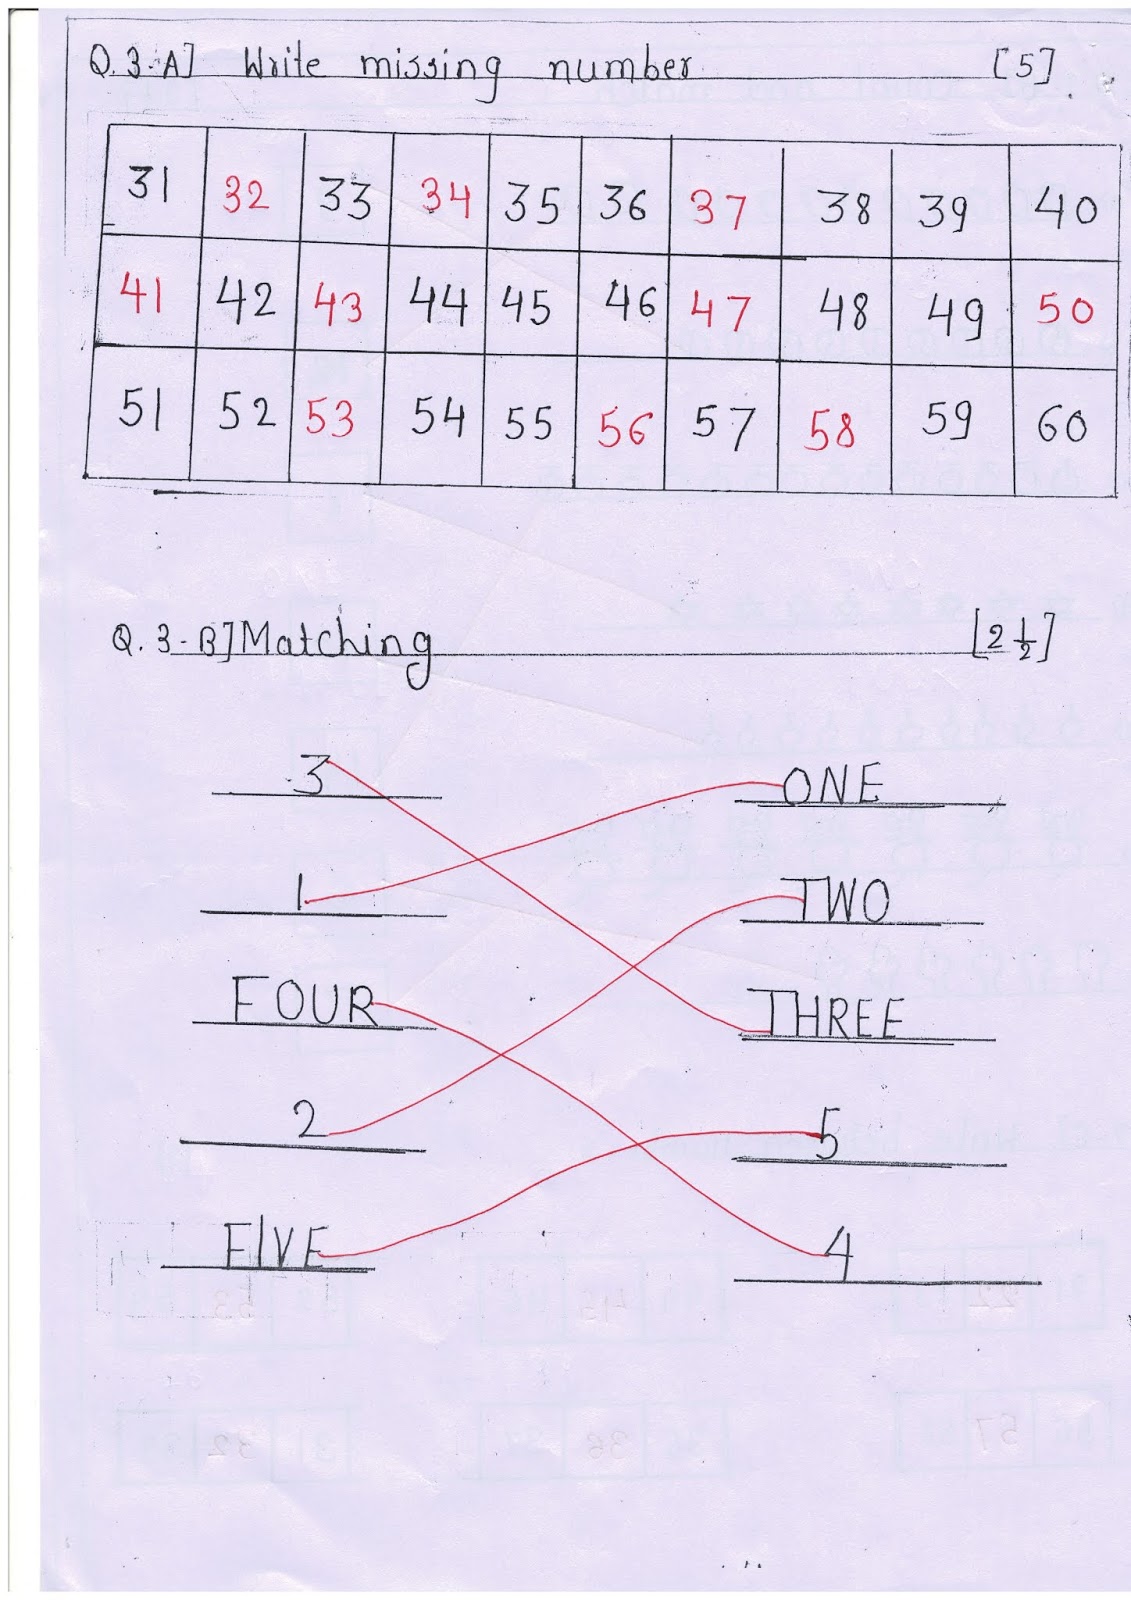 Q. 3-A] Write missing number [5]
31 32 33 34 35 36 37 38 39 40
41 42 43 44 45 46 47 48 49 50
51 52 53 54 55 56 57 58 59 60
Q. 3-B] Matching [2 1/2]
3 ONE
1 TWO
FOUR THREE
2 5
FIVE 4